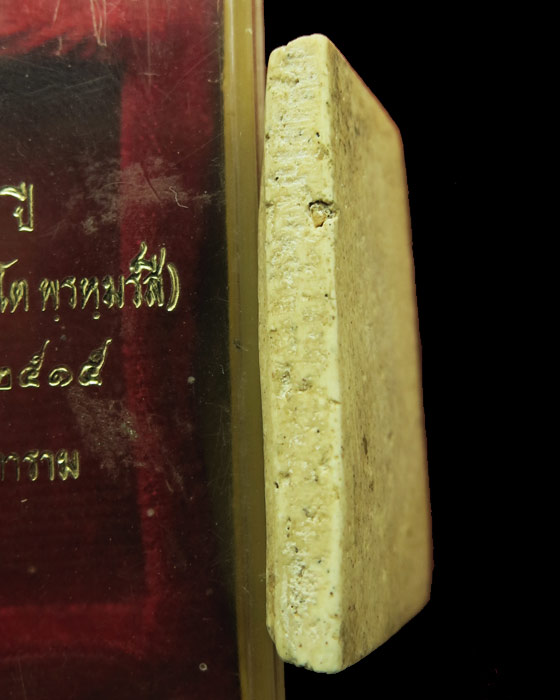 ปี
โต พฺรหฺมรํสี)
๒๕๑๕
าราม